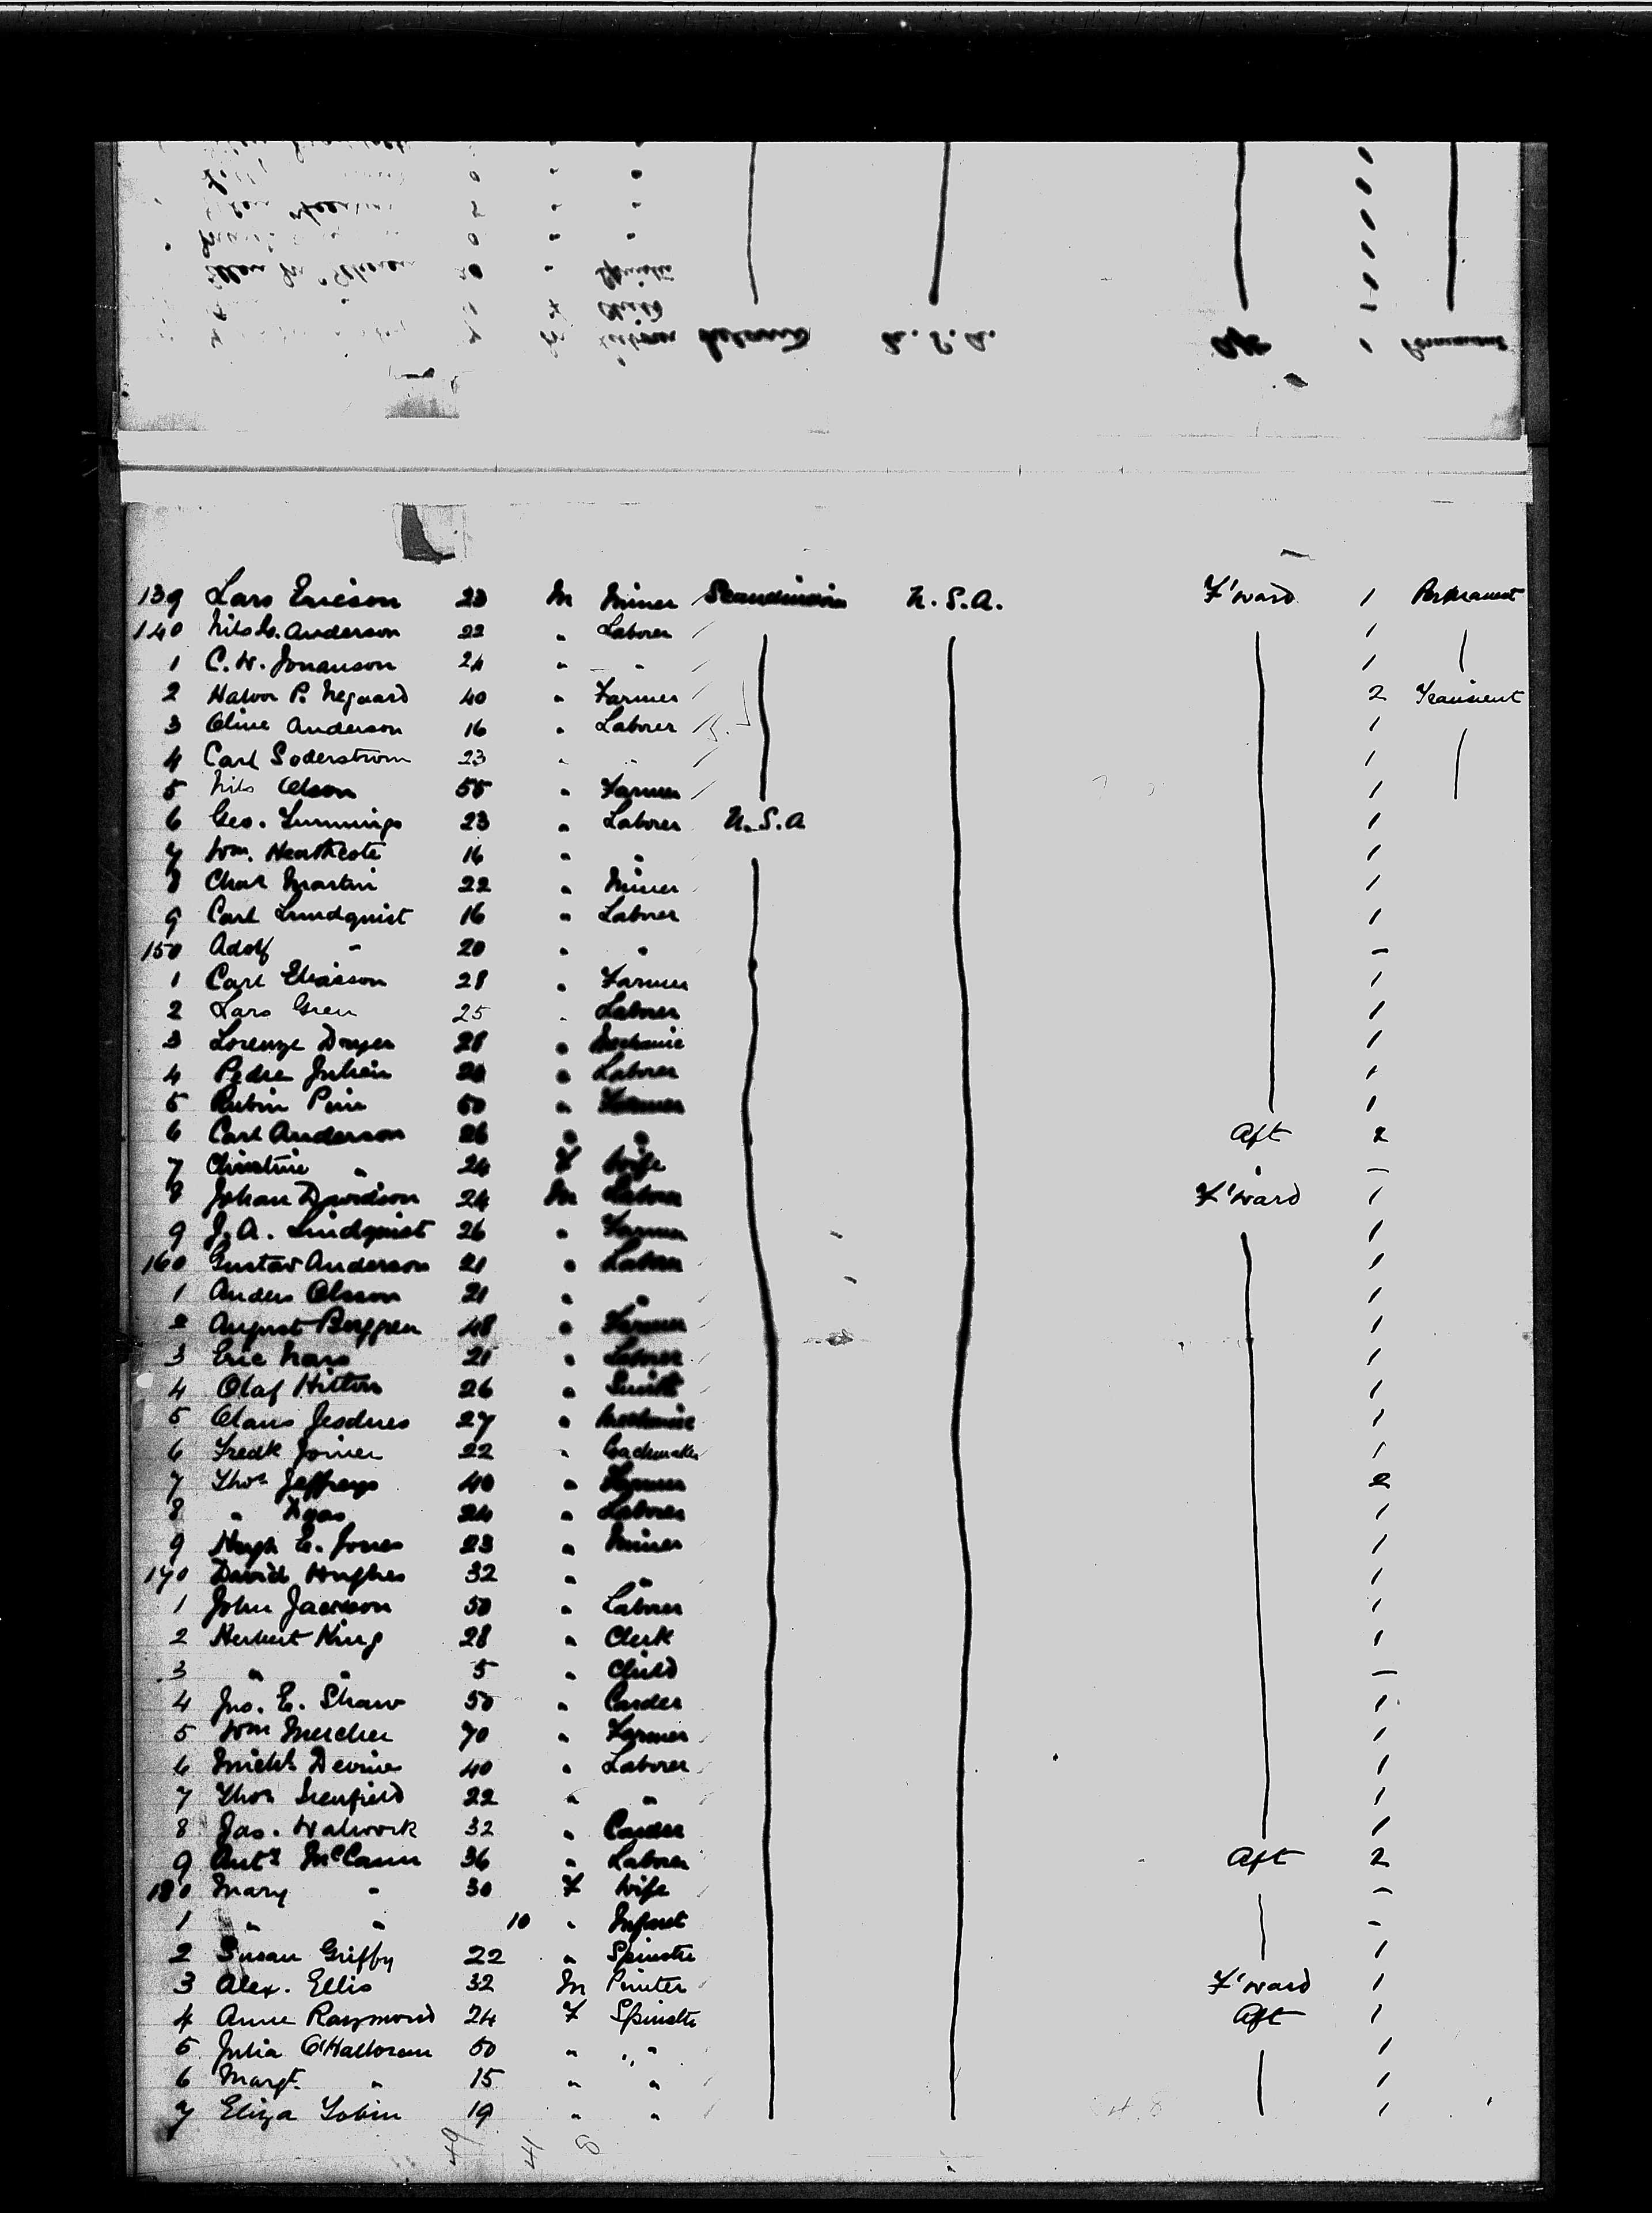 139 Lars Ericson 23 M Miner Scandinavia U.S.A. F'ward 1 Permanent
140 Nils G. Anderson 22 " Laborer 1
1 C.W. Jonanson 24 " " 1
2 Halvor P. Negaard 40 " Farmer 2 Transient
3 Oline Anderson 16 " Laborer 1
4 Carl Soderstrom 23 " " 1
5 Nils Olson 55 " Farmer 1
6 Geo. Lummings 23 " Laborer U.S.A 1
7 Wm. Heathcote 16 " " 1
8 Chas Martin 22 " Miner 1
9 Carl Lundquist 16 " Laborer 1
150 Adolf " 20 " " -
1 Carl Eliasson 28 " Farmer 1
2 Lars Gren 25 " Laborer 1
3 Lorenze Dreyer 28 " Mechanic 1
4 Pedre Julien " Laborer 1
5 Rubin Pine 50 " Farmer 1
6 Carl Anderson 26 " " Aft 2
7 Christine " 24 F Wife -
8 Johan Davidson 24 M Laborer F'ward 1
9 J.A. Lindquist 26 " Farmer 1
160 Gustav Anderson 21 " Laborer 1
1 Anders Olsson 21 " " 1
2 August Berggren 48 " Farmer 1
3 Eric Nars 21 " Laborer 1
4 Olaf Hilton 26 " Smith 1
5 Claus Jesdnes 27 " Mechanic 1
6 Fredk Joiner 22 " Coachmaker 1
7 Thos Jeffreys 40 " Farmer 2
8 " Dyas 24 " Laborer 1
9 Hugh E. Jones 23 " Miner 1
170 David Hughes 32 " " 1
1 John Jackson 50 " Laborer 1
2 Herbert King 28 " Clerk 1
3 " " 5 " Child -
4 Jno. E. Shaw 50 " Carder 1
5 Wm Mercher 70 " Farmer 1
6 Michl Devine 40 " Laborer 1
7 Thos Irenfield 22 " " 1
8 Jas. Walwork 32 " Carder 1
9 Anty McCann 36 " Laborer Aft 2
180 Mary " 30 F Wife -
1 " " 10 " Infant -
2 Susan Griffy 22 " Spinster 1
3 Alex. Ellis 32 M Printer F'ward 1
4 Anne Raymond 24 F Spinster Aft 1
5 Julia O'Halloran 50 " " 1
6 Margt. " 15 " " 1
7 Eliza Tobin 19 " " 1